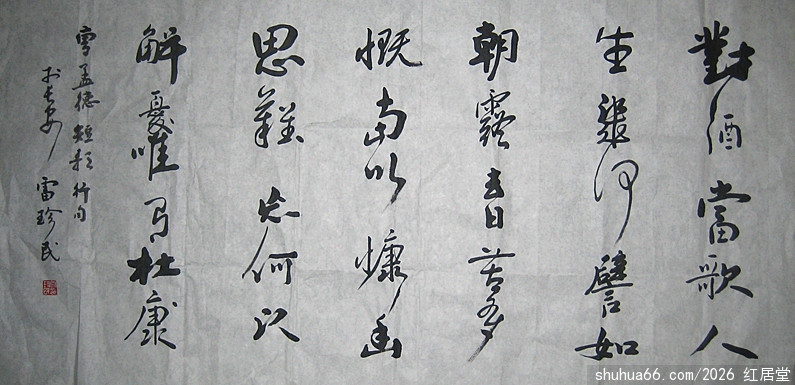 對酒當歌人
生幾何譬如
朝露去日苦多
慨當以慷幽
思難忘何以
解憂唯有杜康
曹孟德短歌行句
於長安 雷珍民
shuhua66.com/2026 红居堂